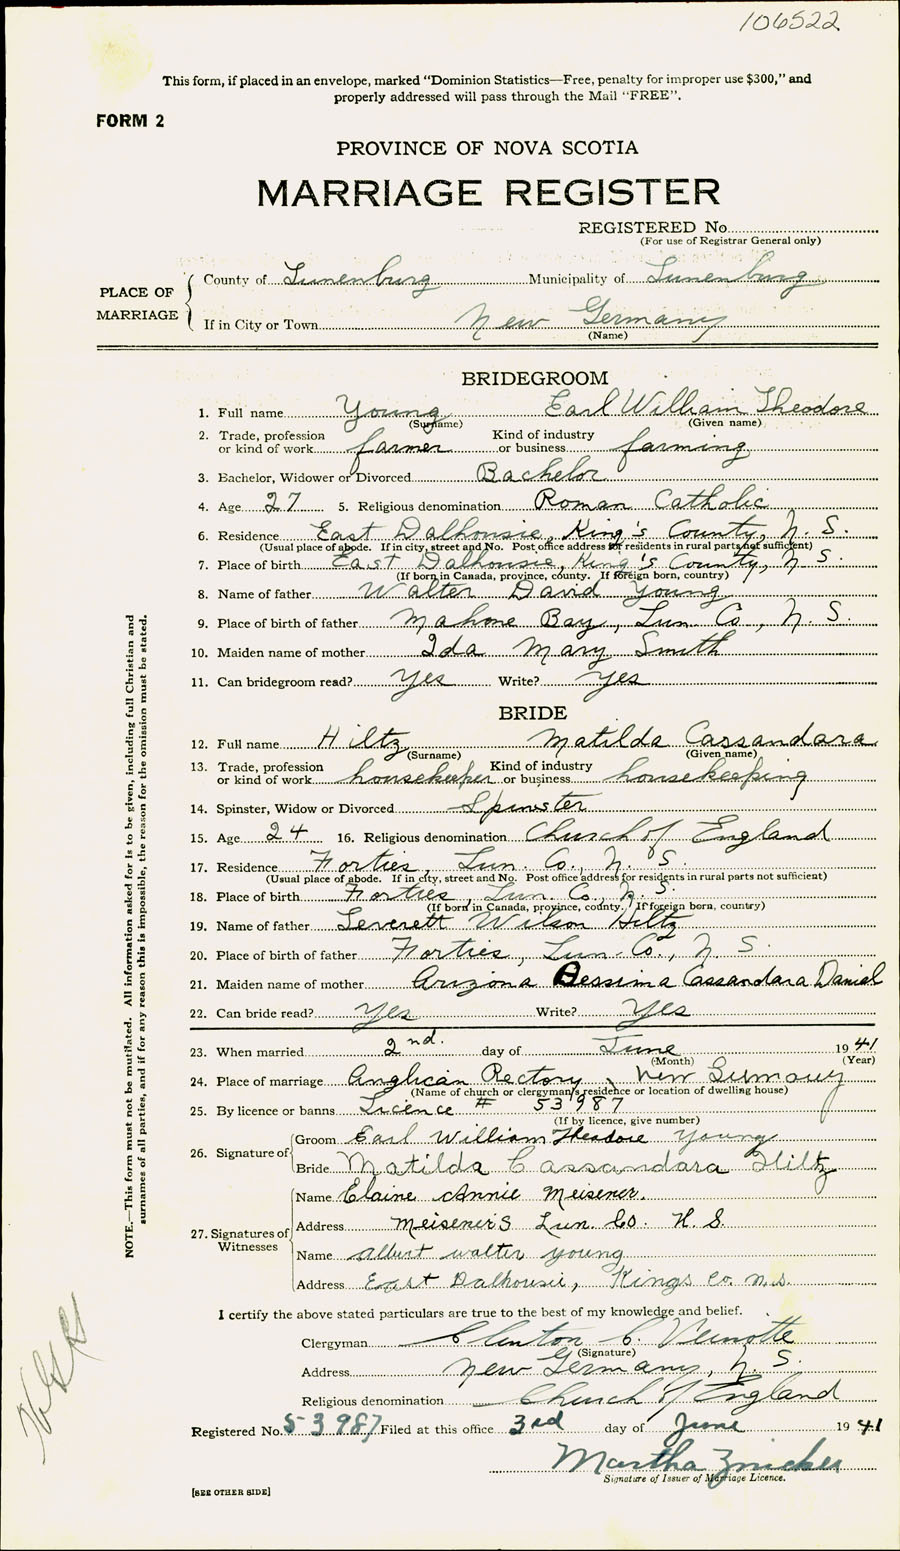 106522
This form, if placed in an envelope, marked "Dominion Statistics—Free, penalty for improper use $300," and
properly addressed will pass through the Mail "FREE".
FORM 2
PROVINCE OF NOVA SCOTIA
MARRIAGE REGISTER
REGISTERED No
(For use of Registrar General only)
PLACE OF MARRIAGE
County of Lunenburg Municipality of Lunenburg
If in City or Town New Germany
(Name)
BRIDEGROOM
1. Full name Young Earl William Theodore
(Surname) (Given name)
2. Trade, profession or kind of work farmer Kind of industry or business farming
3. Bachelor, Widower or Divorced Bachelor
4. Age 27 5. Religious denomination Roman Catholic
6. Residence East Dalhousie, King's County, N. S.
(Usual place of abode. If in city, street and No. Post office address for residents in rural parts not sufficient)
7. Place of birth East Dalhousie, King's County, N S.
(If born in Canada, province, county. If foreign born, country)
8. Name of father Walter David Young
9. Place of birth of father Mahone Bay, Lun. Co., N. S.
10. Maiden name of mother Ida Mary Smith
11. Can bridegroom read? Yes Write? Yes
BRIDE
12. Full name Hiltz Matilda Cassandara
(Surname) (Given name)
13. Trade, profession or kind of work housekeeper Kind of industry or business housekeeping
14. Spinster, Widow or Divorced Spinster
15. Age 24 16. Religious denomination Church of England
17. Residence Forties, Lun. Co., N. S.
(Usual place of abode. If in city, street and No. Post office address for residents in rural parts not sufficient)
18. Place of birth Forties, Lun. Co., N. S.
(If born in Canada, province, county. If foreign born, country)
19. Name of father Leverett Wilson Hiltz
20. Place of birth of father Forties, Lun. Co., N. S.
21. Maiden name of mother Arizona Cassandara Daniel
22. Can bride read? Yes Write? Yes
23. When married 2nd. day of June 1941
(Month) (Year)
24. Place of marriage Anglican Rectory, New Germany
(Name of church or clergyman's residence or location of dwelling house)
25. By licence or banns Licence # 53987
(If by licence, give number)
26. Signature of
Groom Earl William Theodore Young
Bride Matilda Cassandara Hiltz
27. Signatures of Witnesses
Name Elaine Annie Meisener.
Address Meisener's Lun. Co. N. S.
Name Albert walter young
Address East Dalhousie, Kings Co. N.S.
I certify the above stated particulars are true to the best of my knowledge and belief.
Clergyman Clinton C. Veinotte
(Signature)
Address New Germany, N. S.
Religious denomination Church of England
Registered No. 53987 Filed at this office 3rd day of June 1941
Martha Zwicker
Signature of Issuer of Marriage Licence.
[SEE OTHER SIDE]
NOTE.—This form must not be mutilated. All information asked for is to be given, including full Christian and
surnames of all parties, and if for any reason this is impossible, the reason for the omission must be stated.